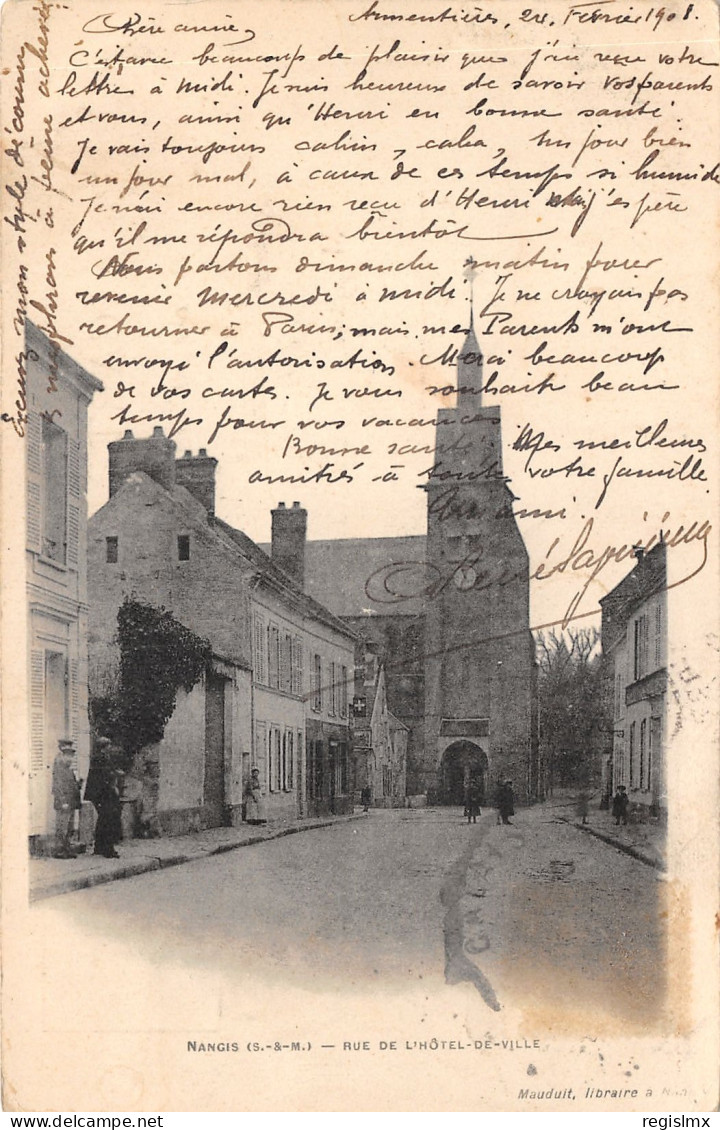 Armentières, 24 Février 1901.
Chère amie,
C'est avec beaucoup de plaisir que j'ai reçu votre
lettre à midi. Je suis heureux de savoir vos parents
et vous, ainsi qu'Henri en bonne santé.
Je vais toujours cahin, caha, un jour bien
un jour mal, à cause de ces temps si humide
Je n'ai encore rien reçu d'Henri mais j'espère
qu'il me répondra bientôt
Nous partons dimanche matin pour
revenir Mercredi à midi. Je ne croyais pas
retourner à Paris; mais mes Parents m'ont
envoyé l'autorisation. Merci beaucoup
de vos cartes. Je vous souhaite beau
temps pour vos vacances.
Bonne santé. Mes meilleures
amitiés à toute votre famille
Ton ami.
René
Excusez mon style décousu
je suis à peine
NANGIS (S.-&-M.) — RUE DE L'HÔTEL-DE-VILLE
Mauduit, libraire a
regislmx
delcampe.net